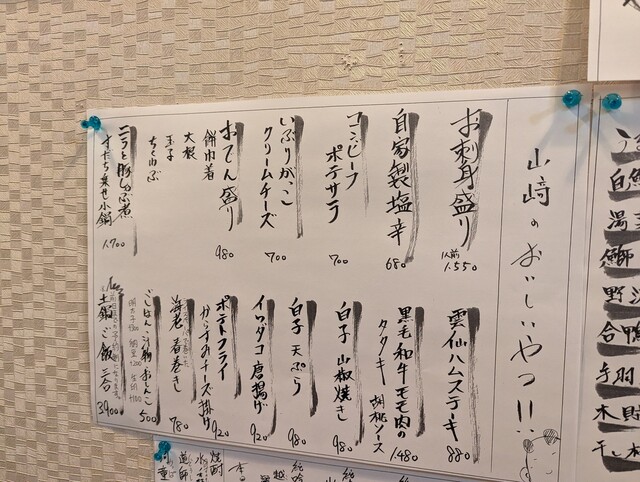 山﨑のおいしいやつ!!
お刺身盛り
1人前
1.550
自家製塩辛
680
コンビーフ
ポテサラ
700
いぶりがっこ
クリームチーズ
700
おでん盛り
餅巾着
大根
玉子
ちくわぶ
980
ニラと豚しゃぶ煮
すだち乗せ小鍋
1.700
雲仙ハムステーキ
880
黒毛和牛モモ肉の
タタキ 胡桃ソース
1.480
白子 山椒焼き
980
白子 天ぷら
980
イワダコ唐揚げ
920
ポテトフライ
からすみチーズ掛け
920
海老春巻き
780
ごはん・汁物・おしんこ
500
明太子 納豆+200 +100
土鍋ご飯 三合
3900
白
湯
鰤
野
合鴨
手羽
木
干し
焼酎